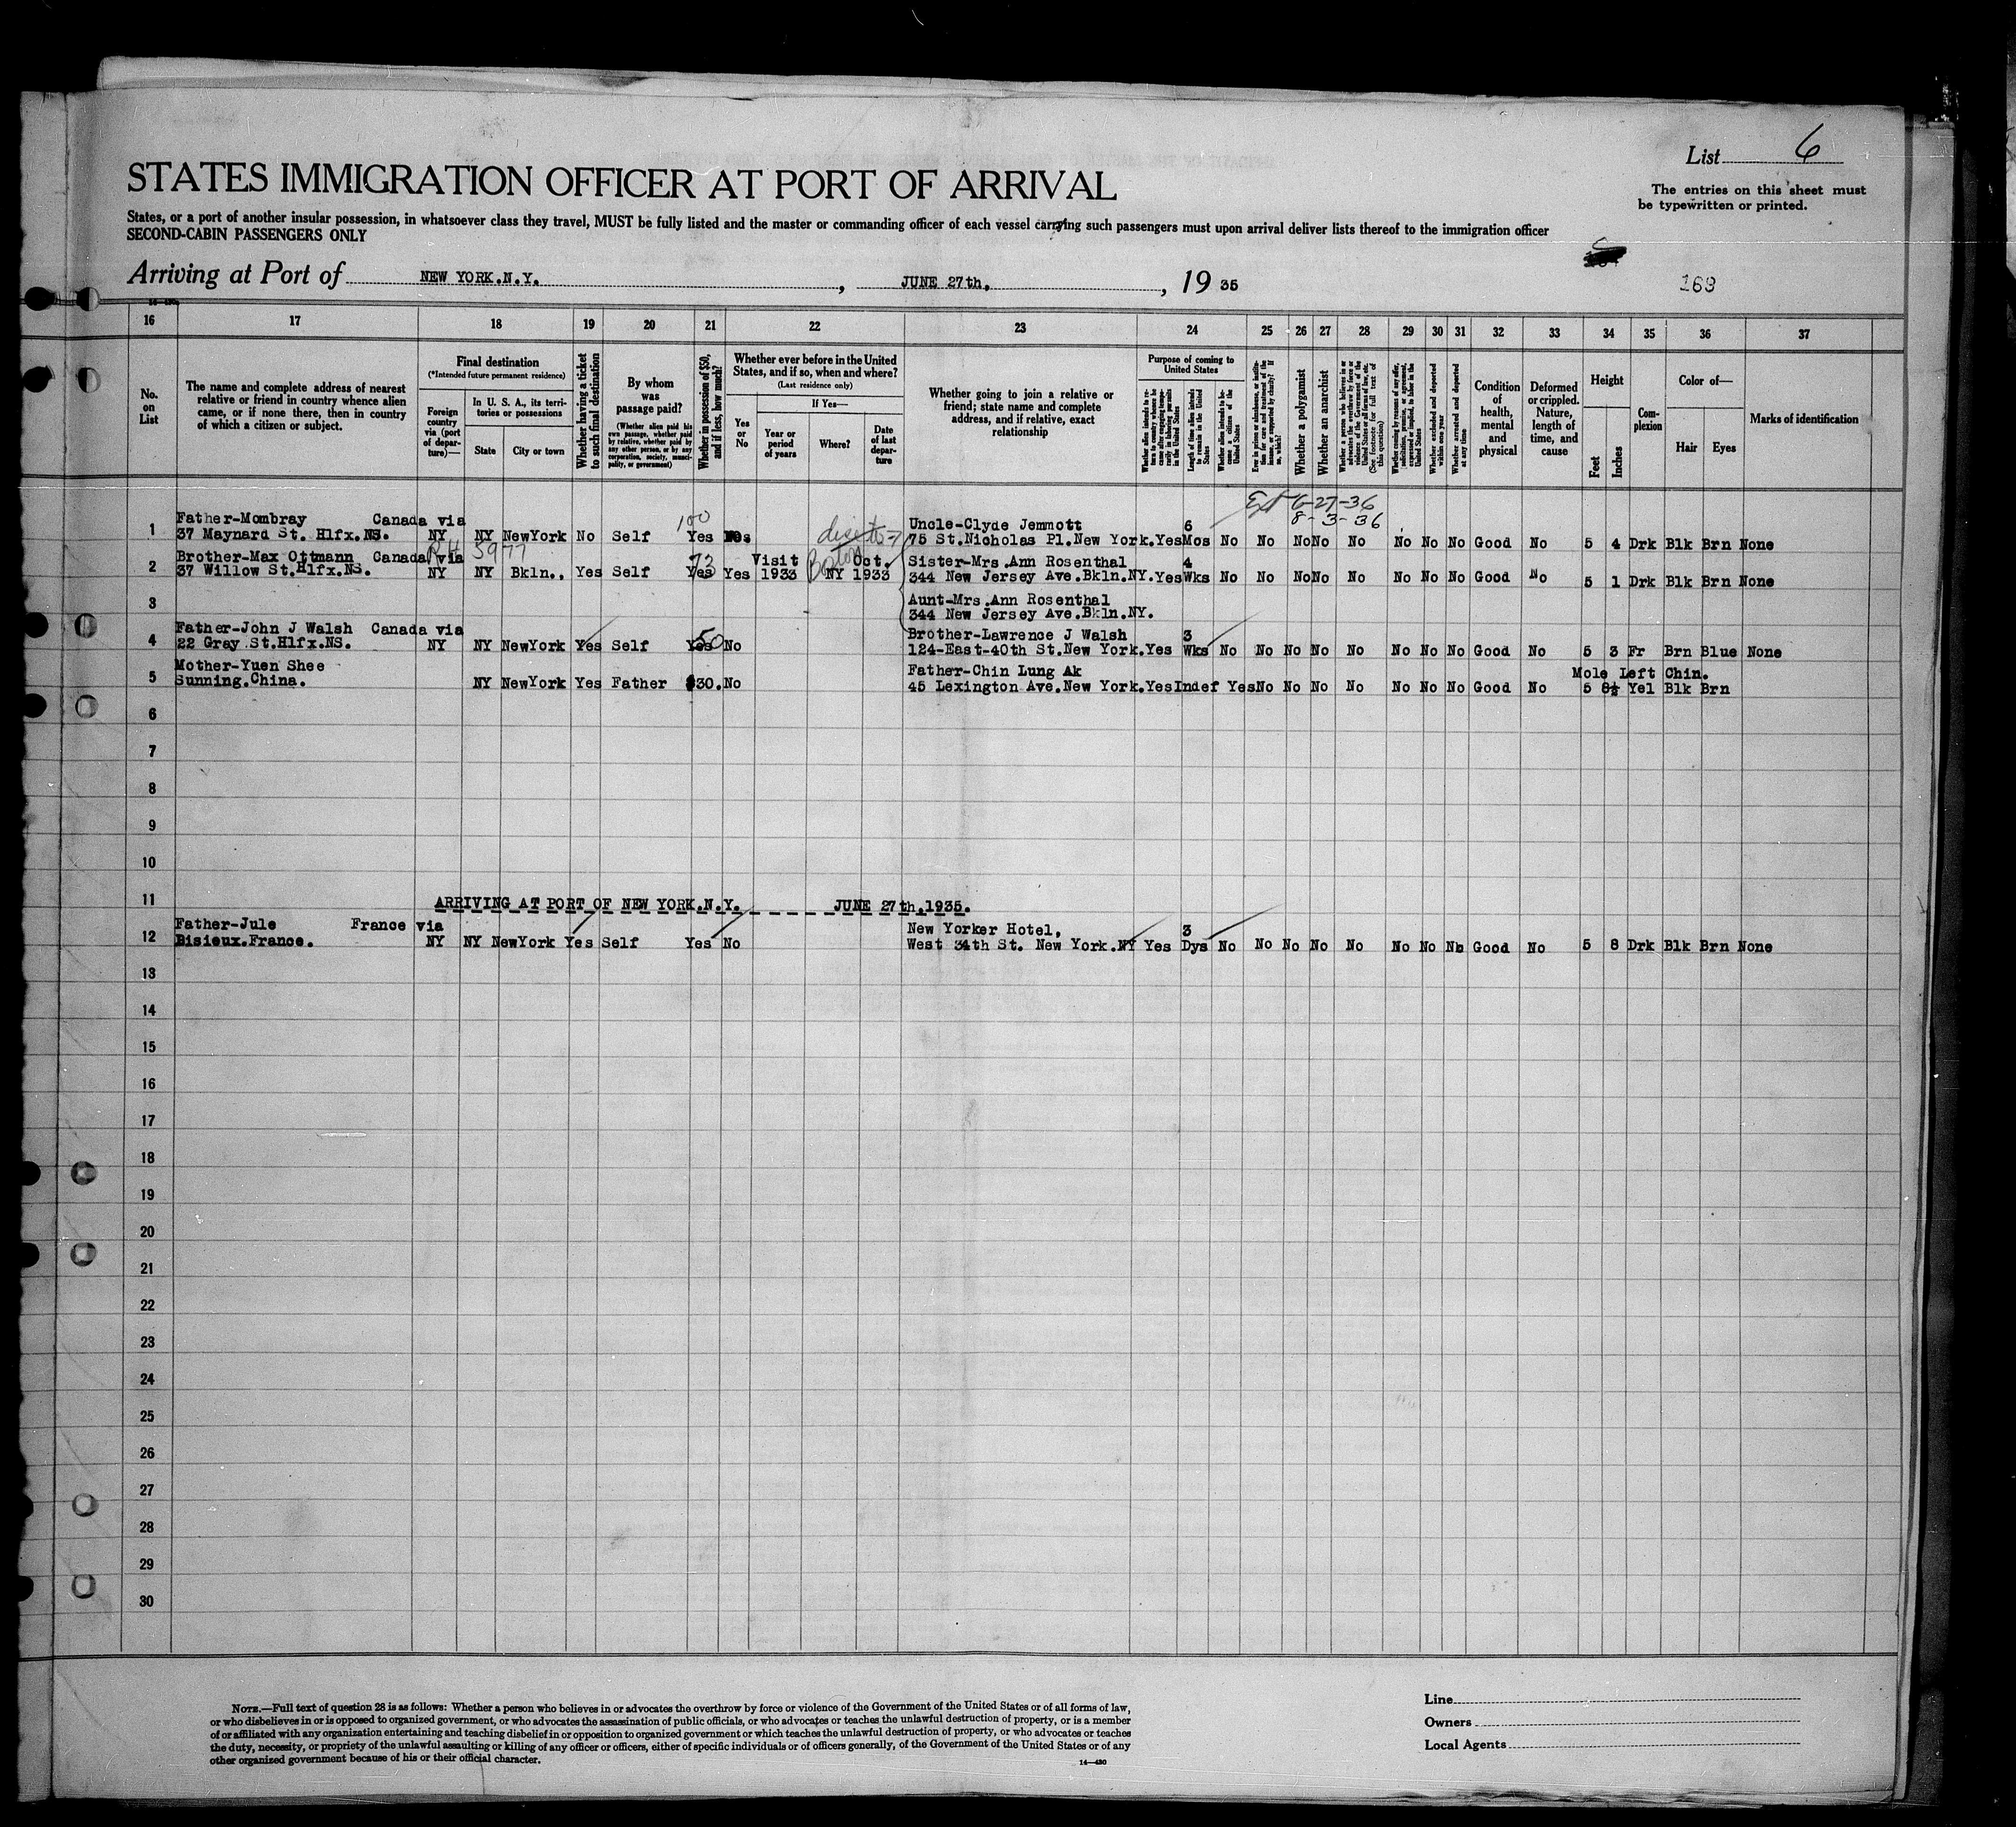 List 6
STATES IMMIGRATION OFFICER AT PORT OF ARRIVAL
The entries on this sheet must
be typewritten or printed.
States, or a port of another insular possession, in whatsoever class they travel, MUST be fully listed and the master or commanding officer of each vessel carrying such passengers must upon arrival deliver lists thereof to the immigration officer
SECOND-CABIN PASSENGERS ONLY
Arriving at Port of NEW YORK.N.Y. , JUNE 27th. , 19 35
163
16 17 18 19 20 21 22 23 24 25 26 27 28 29 30 31 32 33 34 35 36 37
No.
on
List
The name and complete address of nearest
relative or friend in country whence alien
came, or if none there, then in country
of which a citizen or subject.
Final destination
(*Intended future permanent residence)
Foreign
country
via (port
of depar-
ture)—
In U. S. A., its terri-
tories or possessions
State
City or town
Whether having a ticket
to such final destination
By whom
was
passage paid?
(Whether alien paid his
own passage, whether paid
by relative, whether paid by
any other person, or by any
corporation, society, munici-
pality, or government)
Whether in possession of $50,
and if less, how much?
Whether ever before in the United
States, and if so, when and where?
(Last residence only)
Yes
or
No
If Yes—
Year or
period
of years
Where?
Date
of last
depar-
ture
Whether going to join a relative or
friend; state name and complete
address, and if relative, exact
relationship
Purpose of coming to
United States
Whether alien intends to re-
turn to country whence he
came after engaging tempo-
rarily in laboring pursuits
in the United States
Length of time alien intends
to remain in the United
States
Whether alien intends to be-
come a citizen of the
United States
Ever in prison or almshouse, or institu-
tion for care and treatment of the
insane, or supported by charity? If
so, which?
Whether a polygamist
Whether an anarchist
Whether a person who believes in or
advocates the overthrow by force or
violence of the Government of the
United States or all forms of law, etc.
(See footnote for full text of
this question)
Whether coming by reason of any offer,
solicitation, promise, or agreement,
expressed or implied, to labor in the
United States
Whether excluded and deported
within one year
Whether arrested and deported
at any time
Condition
of
health,
mental
and
physical
Deformed
or crippled.
Nature,
length of
time, and
cause
Height
Feet
Inches
Com-
plexion
Color of—
Hair
Eyes
Marks of identification
Ext 6-27-36
8-3-36
100
Father-Mombray Canada via Uncle-Clyde Jemmott 6
1 37 Maynard St. Hlfx.NS. NY NY NewYork No Self Yes 75 St.Nicholas Pl.New York.Yes Mos No No No No No No No No Good No 5 4 Drk Blk Brn None
5977
Brother-Max Ottmann Canada via 73 Visit Boston Oct. Sister-Mrs.Ann Rosenthal 4
2 37 Willow St.Hlfx.NS. NY NY Bkln.. Yes Self Yes Yes 1933 NY 1933 344 New Jersey Ave.Bkln.NY.Yes Wks No No No No No No No No Good No 5 1 Drk Blk Brn None
Aunt-Mrs.Ann Rosenthal
3 344 New Jersey Ave.Bkln.NY.
Father-John J Walsh Canada via 50 Brother-Lawrence J Walsh 3
4 22 Gray St.Hlfx.NS. NY NY NewYork Yes Self Yes No 124-East-40th St.New York.Yes Wks No No No No No No No No Good No 5 3 Fr Brn Blue None
Mother-Yuen Shee Father-Chin Lung Ak Mole Left Chin.
5 Sunning.China. NY NewYork Yes Father $30. No 45 Lexington Ave.New York.Yes Indef Yes No No No No No No No Good No 5 8½ Yel Blk Brn
6
7
8
9
10
11 ARRIVING AT PORT OF NEW YORK.N.Y. JUNE 27th.1935.
Father-Jule France via New Yorker Hotel, 3
12 Bisieux.France. NY NY NewYork Yes Self Yes No West 34th St. New York.NY Yes Dys No No No No No No No No Good No 5 8 Drk Blk Brn None
13
14
15
16
17
18
19
20
21
22
23
24
25
26
27
28
29
30
NOTE.—Full text of question 28 is as follows: Whether a person who believes in or advocates the overthrow by force or violence of the Government of the United States or of all forms of law,
or who disbelieves in or is opposed to organized government, or who advocates the assassination of public officials, or who advocates or teaches the unlawful destruction of property, or is a member
of or affiliated with any organization entertaining and teaching disbelief in or opposition to organized government or which teaches the unlawful destruction of property, or who advocates or teaches
the duty, necessity, or propriety of the unlawful assaulting or killing of any officer or officers, either of specific individuals or of officers generally, of the Government of the United States or of any
other organized government because of his or their official character.
14—430
Line
Owners
Local Agents